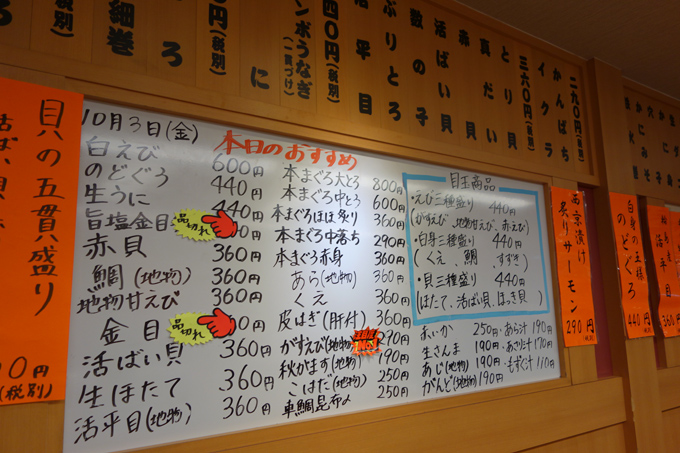 細巻
ろ
円(税別)
に
ンボうなぎ
(一貫づけ)
40円(税別)
活平目
ぶりとろ
数の子
活ばい貝
赤貝
真だい
とり貝
三六〇円(税別)
イクラ
かんぱち
二九〇円(税別)
貝の五貫盛り
(税別)
10月3日(金)
本日のおすすめ
白えび 600円
のどぐろ 440円
生うに 440円
旨塩金目
品切れ
赤貝 360円
鯛(地物) 360円
地物甘えび 360円
金目
品切れ
活ばい貝 360円
生ほたて 360円
活平目(地物) 360円
本まぐろ大とろ 800円
本まぐろ中とろ 600円
本まぐろほほ炙り 360円
本まぐろ中落ち 290円
本まぐろ赤身 360円
あら(地物) 360円
くえ 360円
皮はぎ(肝付) 360円
がすえび(地物) 290円
秋かます(地物) 190円
こはだ(地物) 250円
車鯛昆布〆 250円
目玉商品
・えび三種盛り 440円
(がすえび、地物甘えび、赤えび)
・白身三種盛り 440円
(くえ、鯛、すずき)
・貝三種盛り 440円
(ほたて、活ばい貝、ほっき貝)
まいか 250円
生さんま 190円
あじ(地物) 190円
がんど(地物) 190円
・あら汁 190円
・あさり汁 190円
・もずく汁 110円
お京漬け
炙りサーモン
290円(税別)
白身の王様
のどぐろ
440円(税別)
活平目
360円(税別)